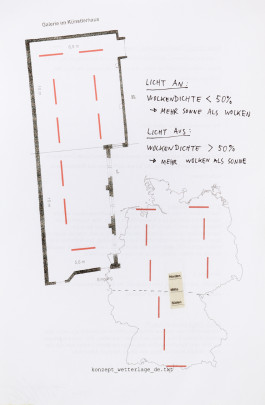 Galerie im Künstlerhaus
LICHT AN:
WOLKENDICHTE < 50%
→ MEHR SONNE ALS WOLKEN
LICHT AUS:
WOLKENDICHTE > 50%
→ MEHR WOLKEN ALS SONNE
Norden
Mitte
Süden
konzept_wetterlage_de.twr